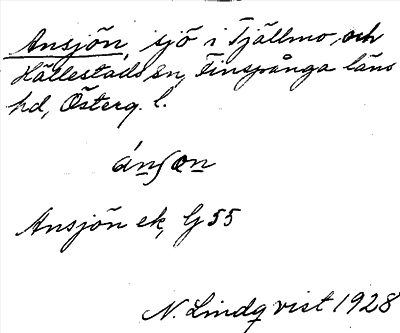 Ansjön, sjö i Tjällmo, och
Hällestads sn, Finspånga läns
hd, Österg. l.
ánʃon
Ansjön ek, G 55
N. Lindqvist 1928